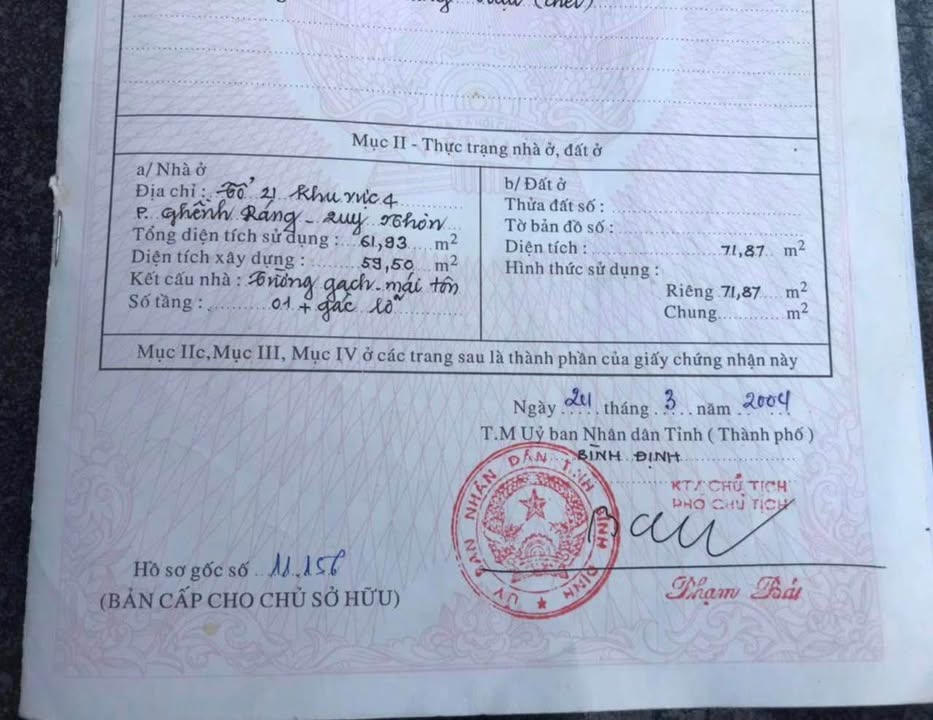 (chết)
Mục II - Thực trạng nhà ở, đất ở
a/ Nhà ở
Địa chỉ : Tổ 21 Khu vực 4
P. Ghềnh Ráng - Quy Nhơn
Tổng diện tích sử dụng : 61,93 m²
Diện tích xây dựng : 59,50 m²
Kết cấu nhà : Tường gạch - mái tôn
Số tầng : 01 + gác lỡ
b/ Đất ở
Thửa đất số :
Tờ bản đồ số :
Diện tích : 71,87 m²
Hình thức sử dụng :
Riêng 71,87 m²
Chung m²
Mục IIc,Mục III, Mục IV ở các trang sau là thành phần của giấy chứng nhận này
Ngày 24 tháng 3 năm 2004
T.M Uỷ ban Nhân dân Tỉnh ( Thành phố )
BÌNH ĐỊNH
KT/ CHỦ TỊCH
PHÓ CHỦ TỊCH
ỦY BAN NHÂN DÂN TỈNH BÌNH ĐỊNH
Phạm Bái
Hồ sơ gốc số 11.156
(BẢN CẤP CHO CHỦ SỞ HỮU)